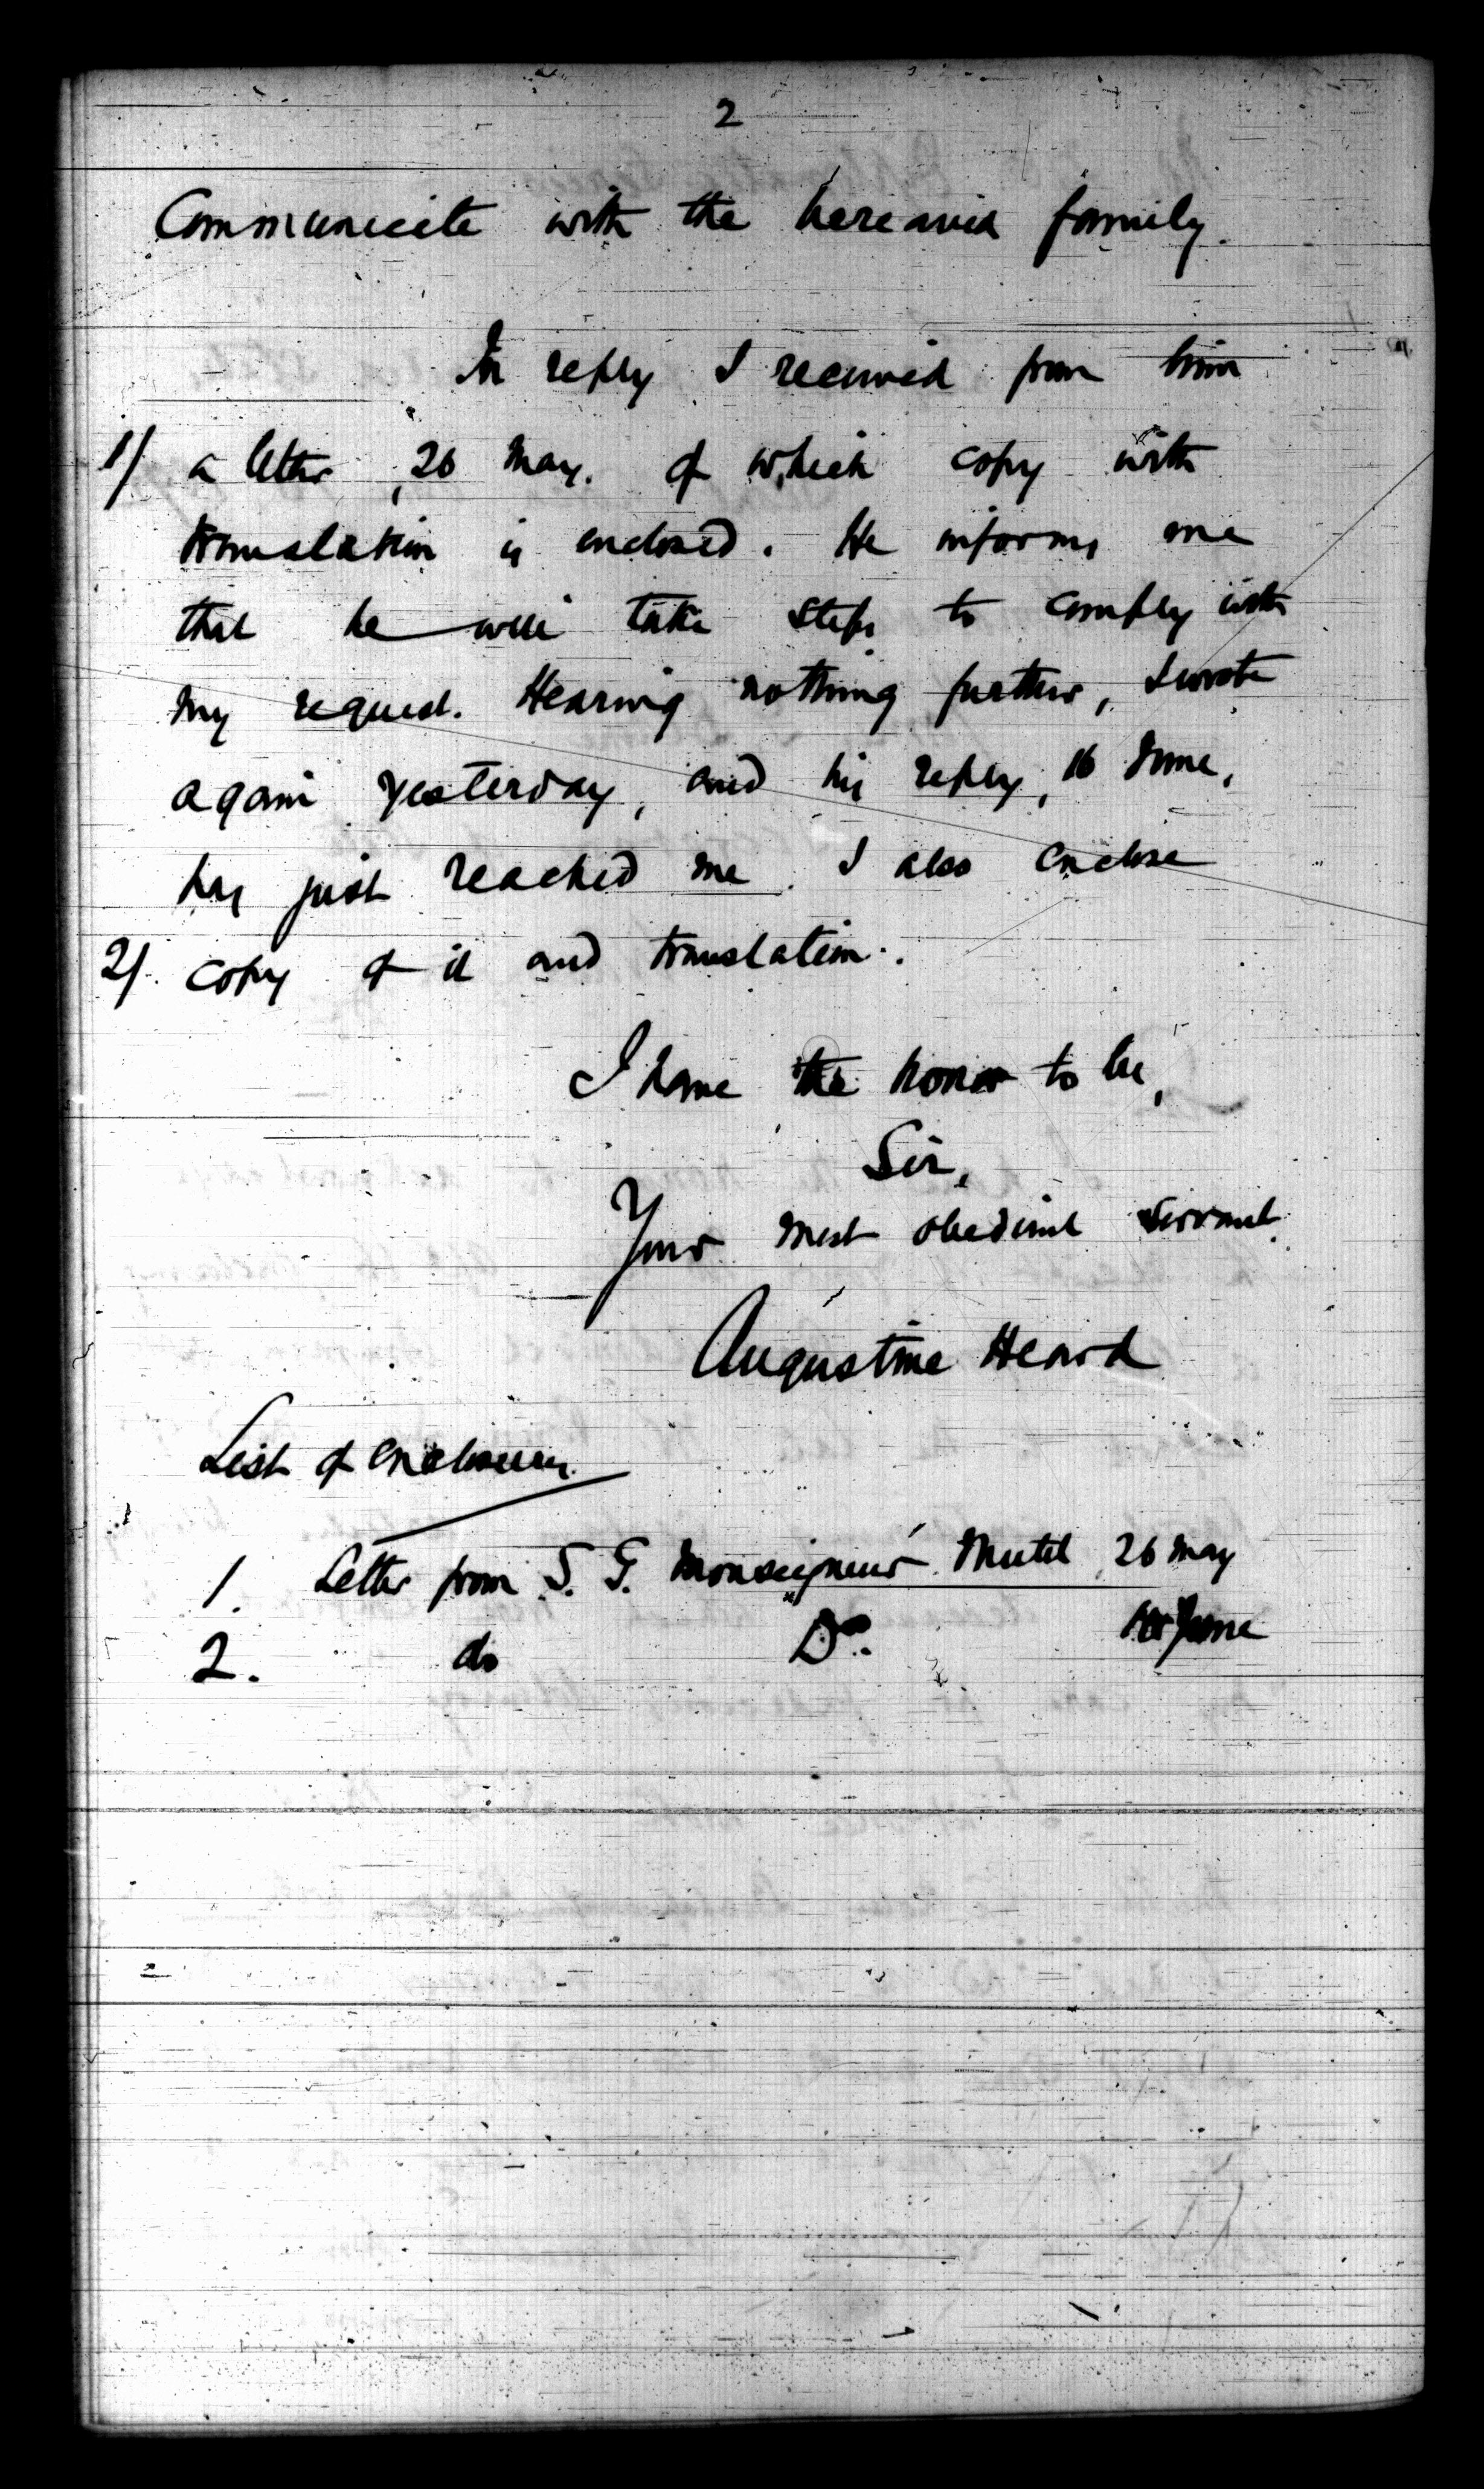 2
Communicate with the bereaved family.
In reply I received from him
1/ a letter, 26 May. of which copy with
translation is enclosed. He informs me
that he will take steps to comply with
my request. Hearing nothing further, I wrote
again yesterday, and his reply, 16 June,
has just reached me. I also enclose
2/. copy of it and translation.
I have the honor to be,
Sir,
Your most obedient servant.
Augustine Heard
List of enclosures.
1. Letter from S. G. Monseigneur Mutel, 26 May
2. do Do. June